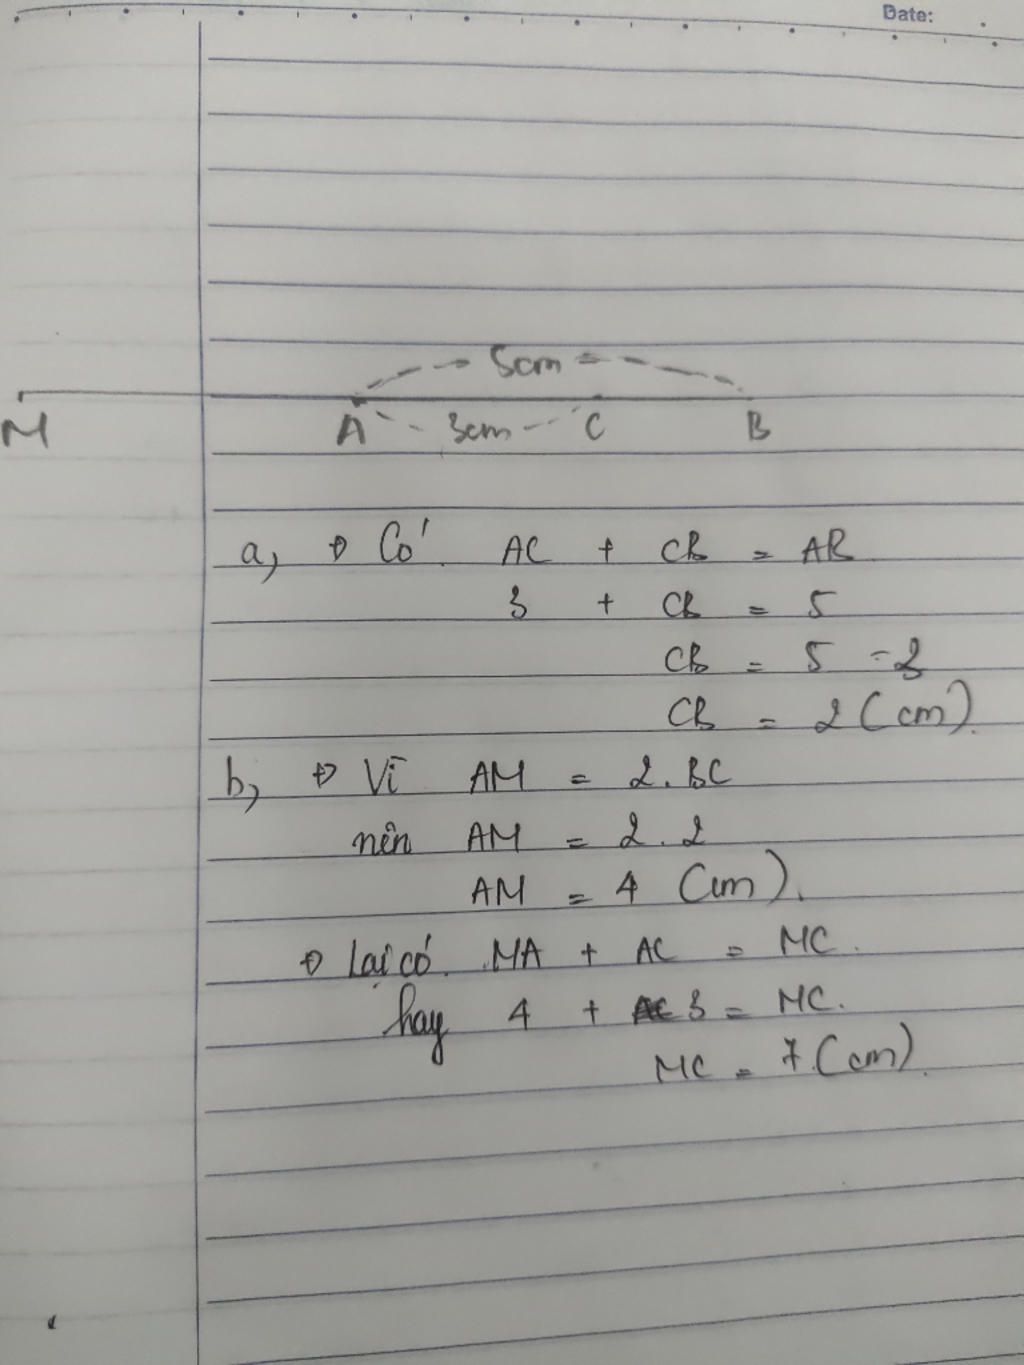 Date:
5cm
M A 3cm C B
a, Có AC + CB = AB
3 + CB = 5
CB = 5 - 3
CB = 2 (cm).
b, Vì AM = 2.BC
nên AM = 2.2
AM = 4 (cm).
Lại có. MA + AC = MC.
hay 4 + 3 = MC.
MC = 7 (cm).